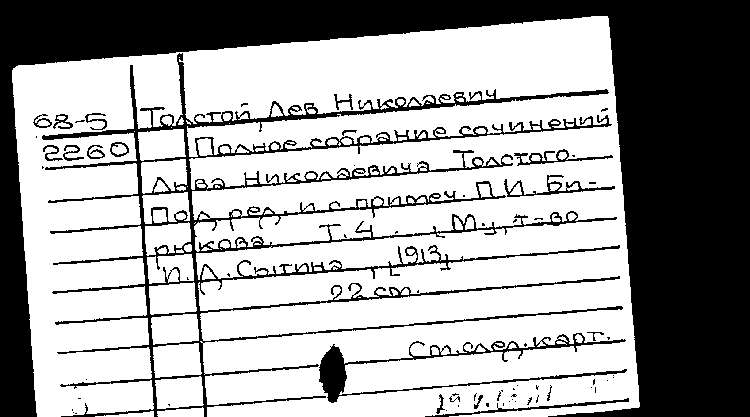 68-5 Толстой, Лев Николаевич
2260 Полное собрание сочинений
Льва Николаевича Толстого.
Под ред. и с примеч. П.И. Би-
рюкова. Т. 4 М., т-во
И.Д. Сытина, [1913].
22 см.
См.след.карт.